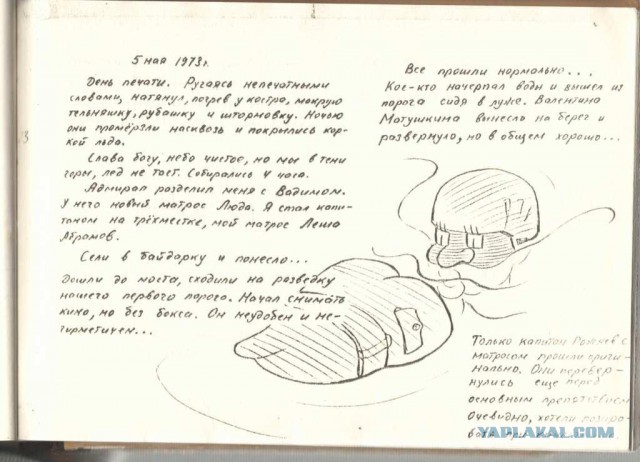 5 мая 1973г.
День печати. Ругаясь непечатными
словами, натянул, погрев у костра, мокрую
тельняшку, рубашку и штормовку. Ночью
они промёрзли насквозь и покрылись кор-
кой льда.
Слава богу, небо чистое, но мы в тени
горы, лед не тает. Собирались 4 часа.
Адмирал разделил меня с Вадимом.
У него новый матрос Люда. Я стал капи-
таном на трёхместке, мой матрос Леша
Абрамов.
Сели в байдарку и понесло...
Дошли до моста, сходили на разведку
нашего первого порога. Начал снимать
кино, но без бокса. Он неудобен и не-
герметичен...
Все прошли нормально...
Кое-кто начерпал воды и вышел из
порога сидя в луже. Валентина
Матушкина вынесло на берег и
развернуло, но в общем хорошо...
Только капитан с
матросом прошли ориги-
нально. Они перевер-
нулись еще перед
основным препятствием
Очевидно, хотели попро-
YAPLAKAL.COM